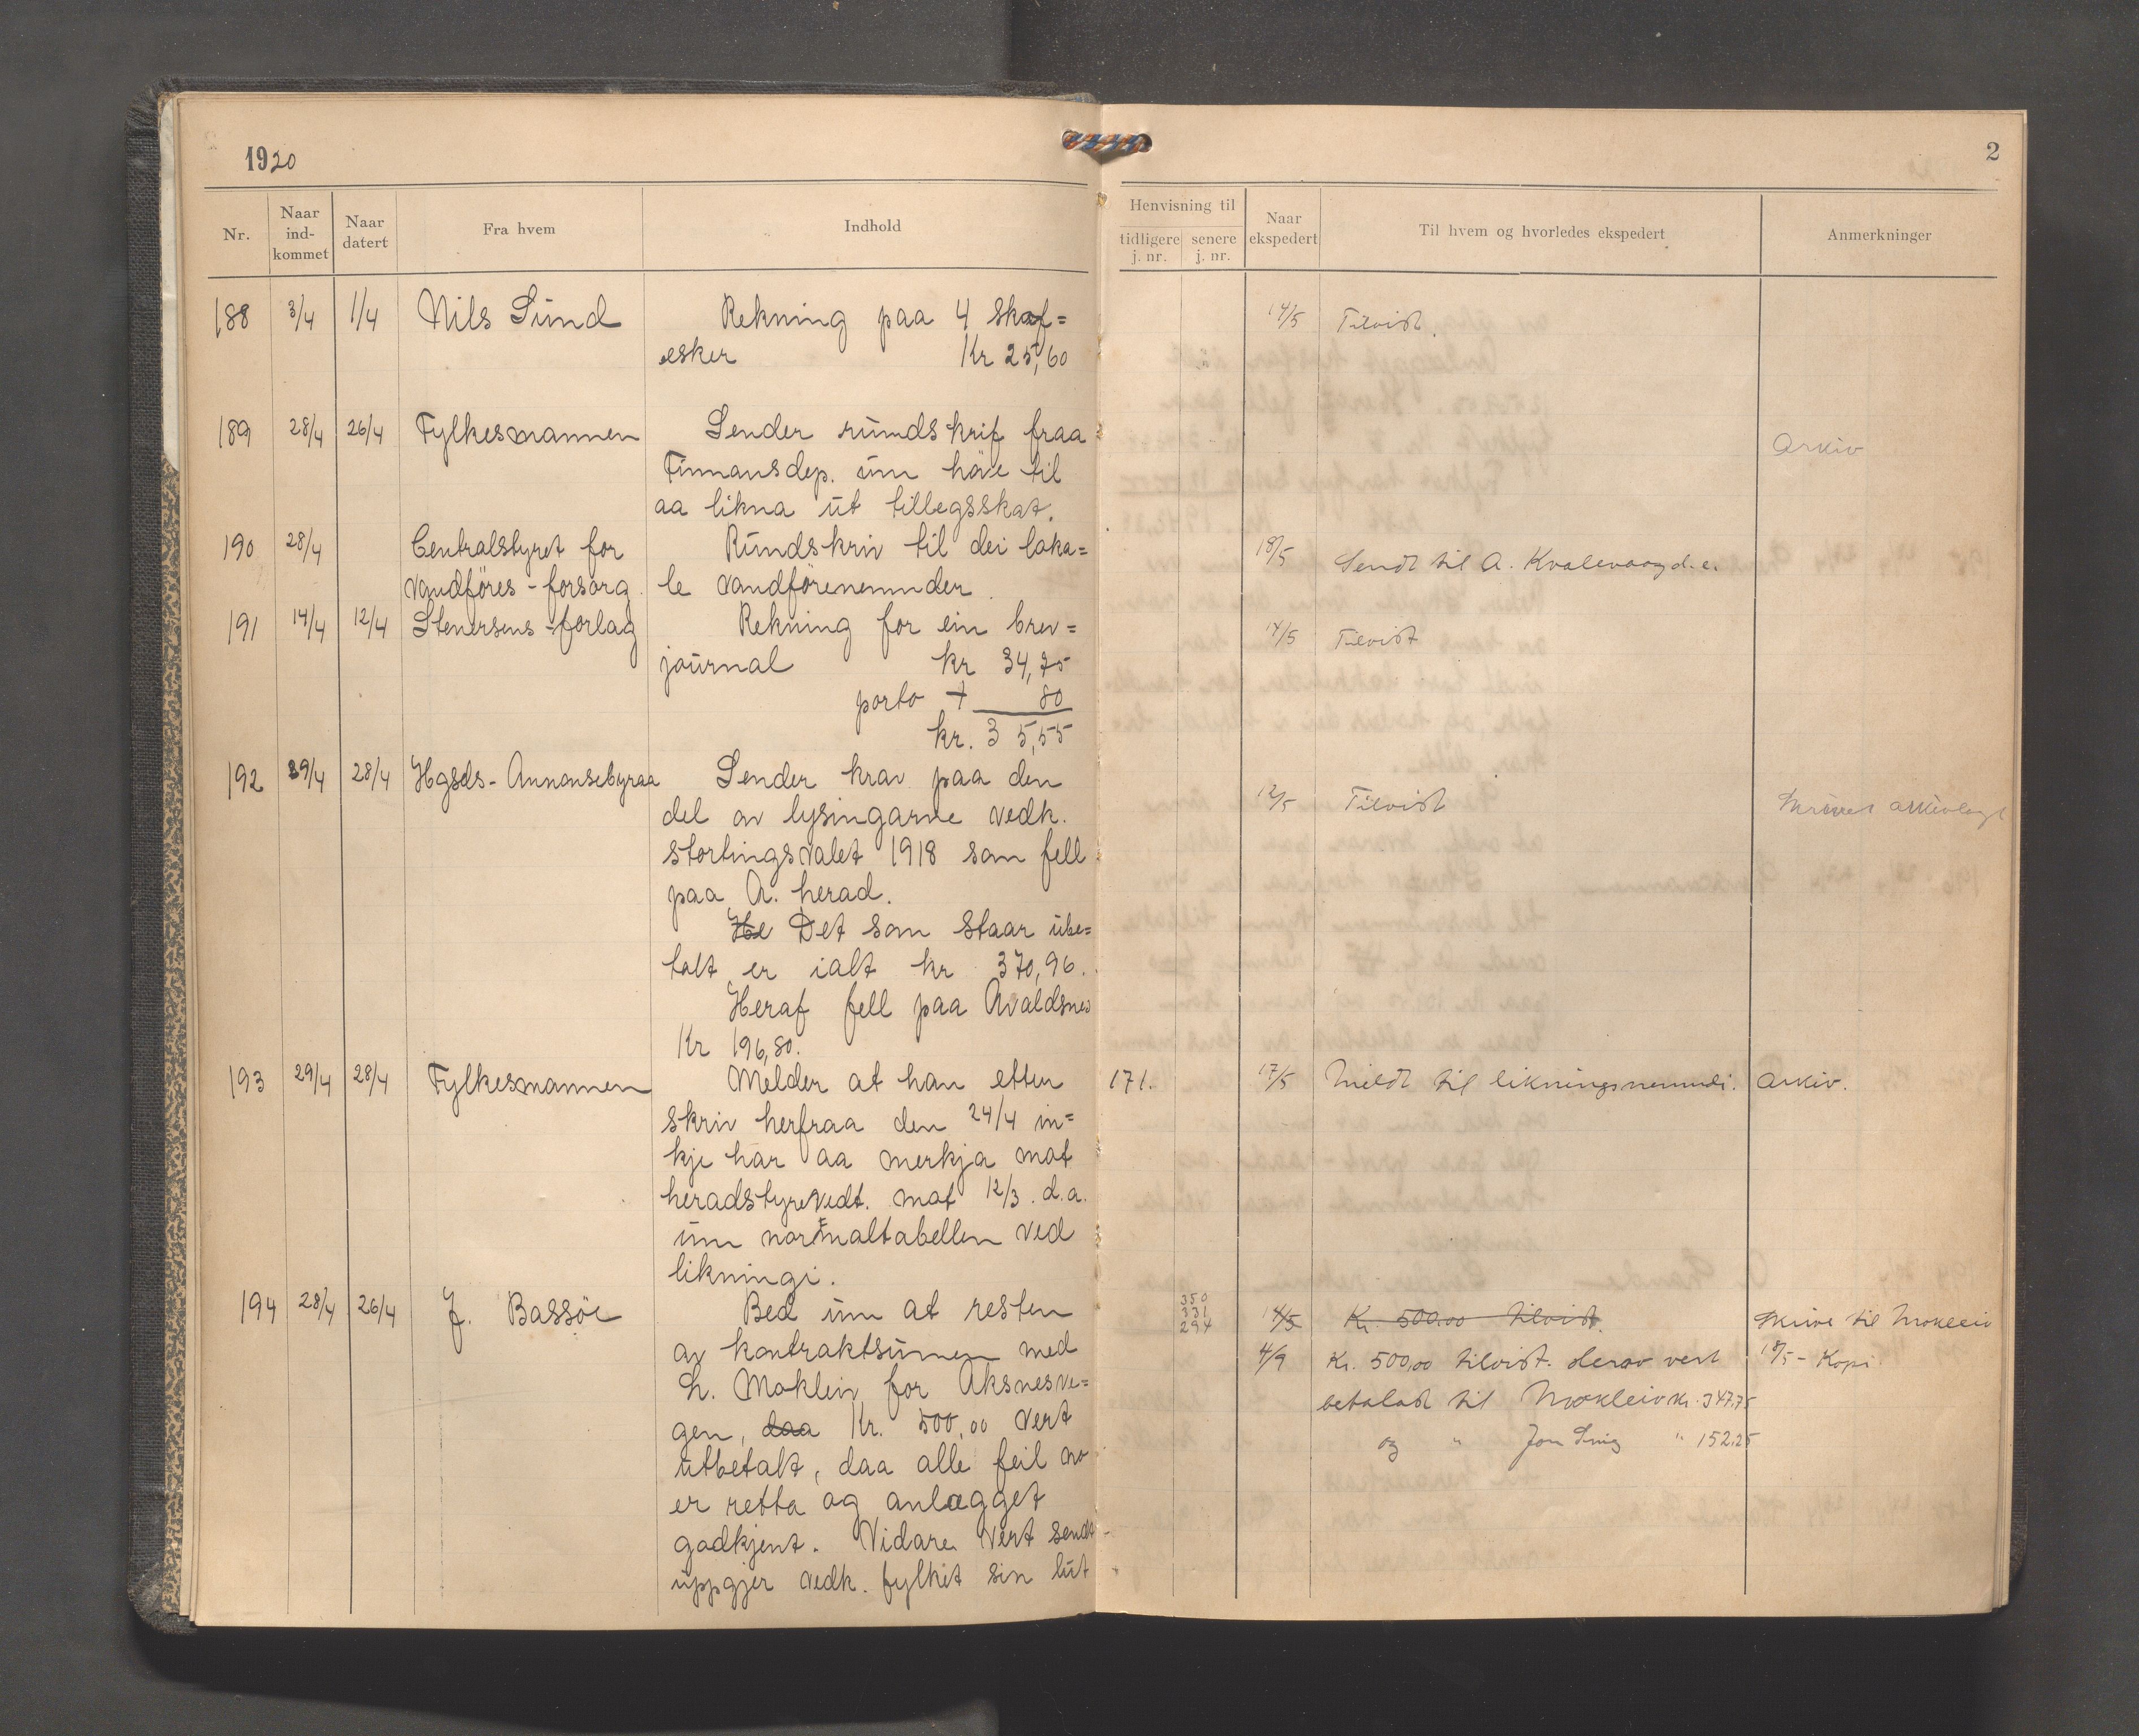 1920
2
Nr.
Naar ind-kommet
Naar datert
Fra hvem
Indhold
Henvisning til
tidligere j. nr.
senere j. nr.
Naar ekspedert
Til hvem og hvorledes ekspedert
Anmerkninger
188 3/4 1/4 Nils Sund Rekning paa 4 skaf= 14/5 Tilvist.
esker Kr 25,60
189 28/4 26/4 Fylkesmannen Sender rundskrif fraa Arkiv
Finansdep. um höve til
aa likna ut tillegsskat.
190 28/4 Centralstyret for Rundskriv til dei loka= 18/5 Sendt til A. Kvalevaag d.e.
vandföres-forsorg le vandförenemnder.
191 14/4 12/4 Stenersens-forlag Rekning for ein brev= 14/5 Tilvist
journal kr 34,75
porto + 80
kr. 35,55
192 29/4 28/4 Hgsds-Annonsebyraa Sender krav paa den 12/5 Tilvist
del av lysingarne vedk.
stortingsvalet 1918 som fell
paa A. herad.
He Det som staar ube=
talt er ialt kr 370,96.
Heraf fell paa Avaldsnes
Kr 196,80.
193 29/4 28/4 Fylkesmannen Melder at han etter 171. 17/5 Meldt til likningsnemndi. Arkiv.
skriv herfraa den 24/4 in=
kje har aa merkja mot
heradstyrevedt. mot 12/3. d.a.
um normaltabellen ved
likningi.
194 28/4 26/4 J. Bassöe Bed um at resten 350 331 294 14/5 Kr. 500.00 tilvist. Skrive til Mokleiv
av kontraktsumen med 4/9 Kr. 500,00 tilvist. derav vert 18/5 - Kopi
L. Mokleiv for Aksnesve= betalad til Mokleiv Kr. 347.75
gen, daa Kr. 500,00 vert og " Jon " 152.25
utbetalt, daa alle feil no
er retta og anlægget
godkjent. Vidare vert sendt
uppgjer vedk. fylket sin lut